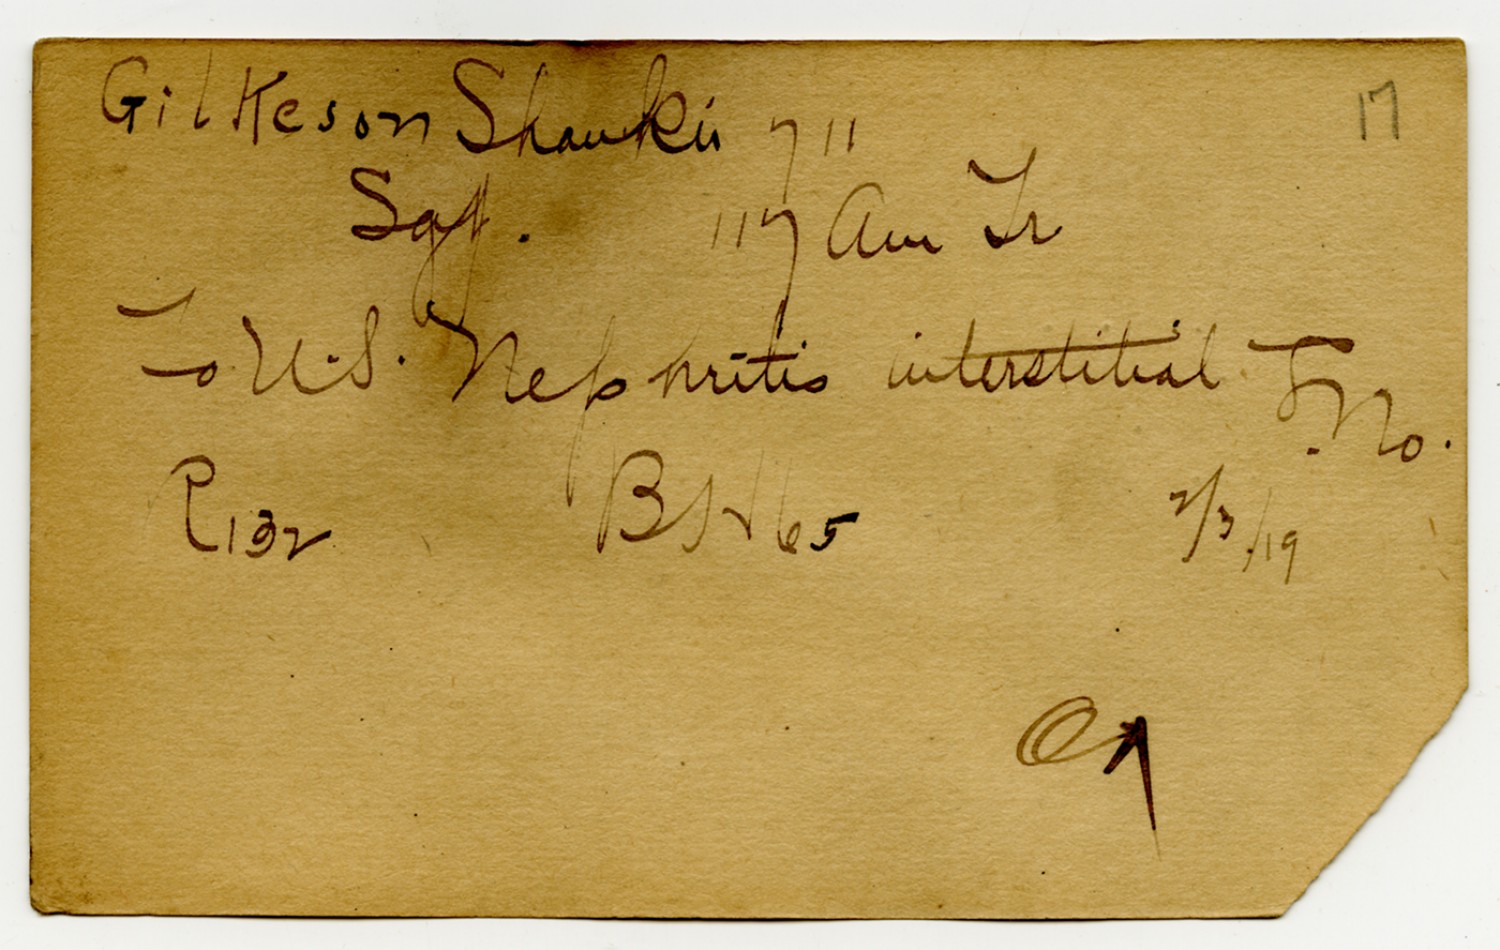 Gilkeson Shaukis 711 17
Sgt. 117 Am Tr
To U.S. Nephritis interstitial
No.
R132 BSH 65 2/3/19